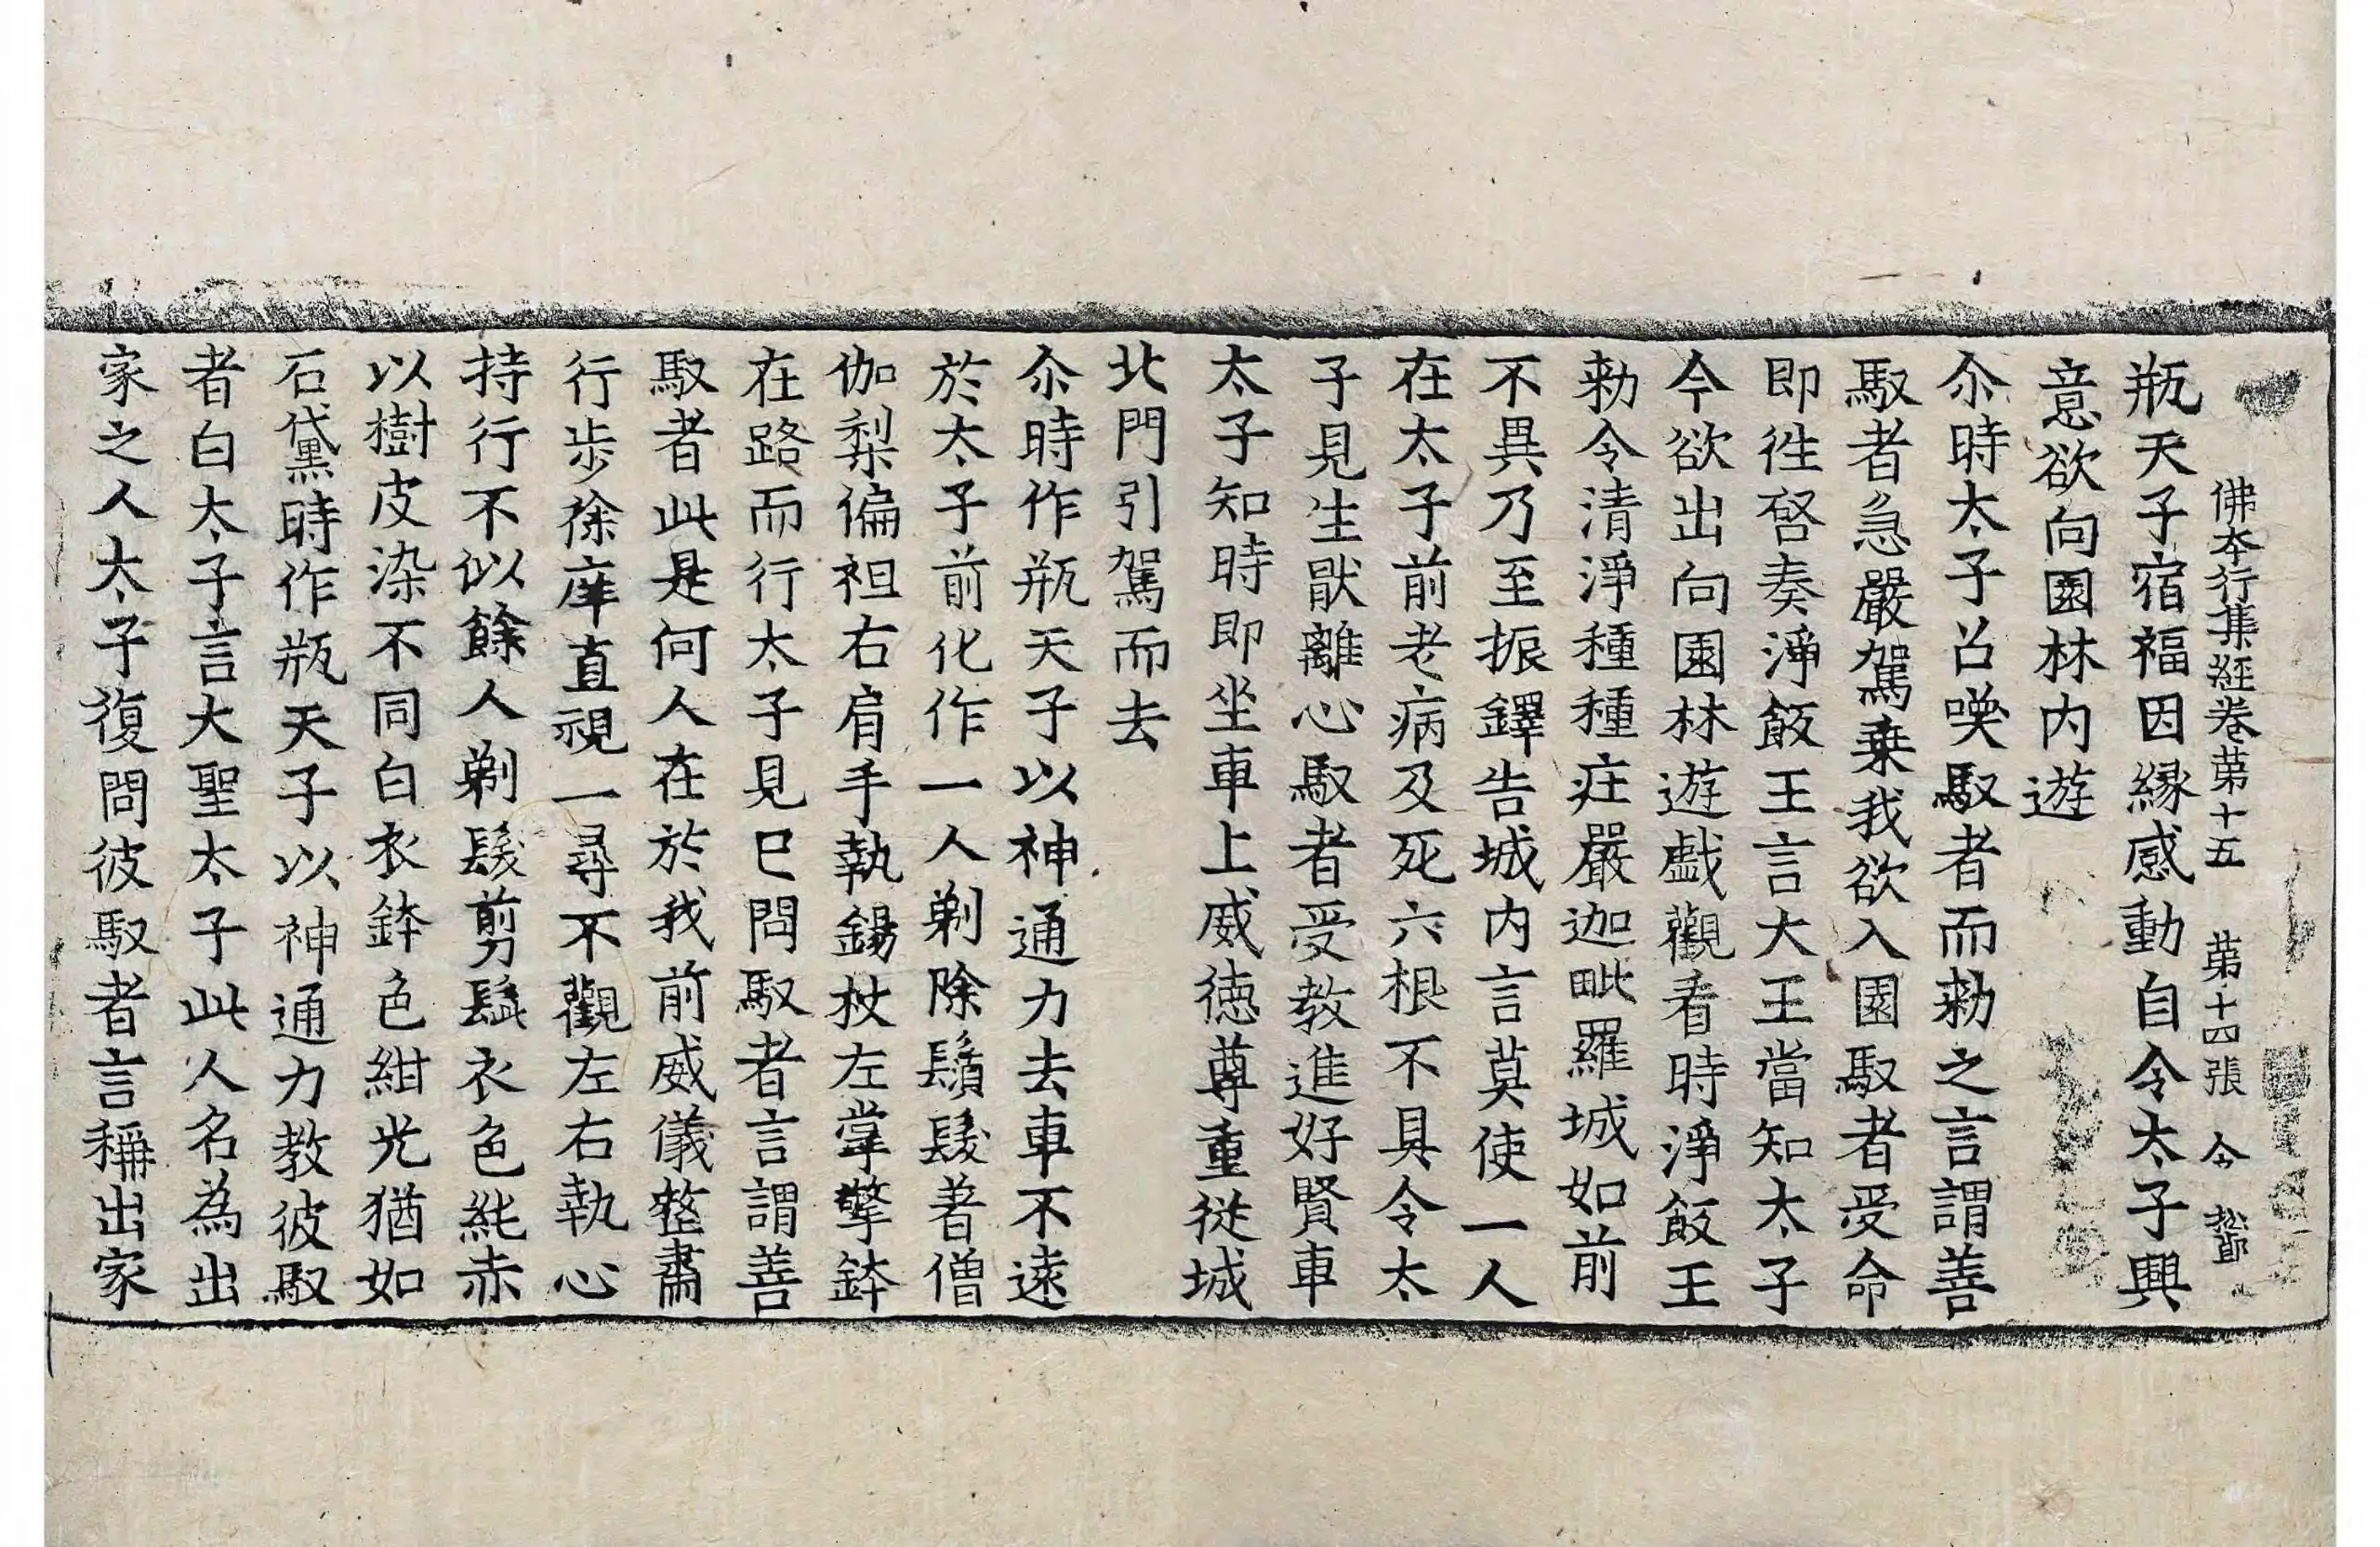 佛夲行集經卷第十五 第十四張 令
瓶天子宿福因縁感動自令太子興
意欲向園林内遊
尒時太子召喚馭者而勑之言謂善
馭者急嚴駕乗我欲入園馭者受命
即徃啓奏淨飯王言大王當知太子
今欲出向園林遊戱觀看時淨飯王
勑令清淨種種疘嚴迦毗羅城如前
不異乃至振鐸告城内言莫使一人
在太子前老病及死六根不具令太
子見生猒離心馭者受教進好賢車
太子知時即坐車上威德尊重従城
北門引駕而去
尒時作瓶天子以神通力去車不遠
於太子前化作一人剃除鬚髮著僧
伽梨偏袒右肩手執錫杖左掌擎鉢
在路而行太子見已問馭者言謂善
馭者此是何人在於我前威儀整肅
行歩徐庠直視一尋不觀左右執心
持行不似餘人剃髮剪鬚衣色純赤
以樹皮染不同白衣鉢色紺光猶如
石黛時作瓶天子以神通力教彼馭
者白太子言大聖太子此人名為出
家之人太子復問彼馭者言稱出家